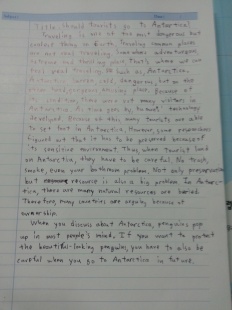 Title: Should tourists go to Antarctica?
Traveling is one of the most dangerous but
exciting thing to do. Traveling famous places
are not real traveling, how about adventurous,
extreme and thrilling place. That's where we can
feel great traveling. Such as, Antarctica.
Antarctica is cold, dangerous, but on the
other hand, gorgeous amazing place. Because of
this, there were not many visitors in
Antarctica. As time goes by, technology
developed. Because of this many tourists are able
to set foot in Antarctica. However, some researchers
figured out that it has to be preserved because of
its sensitive environment. Thus, when tourists land
on Antarctica, they have to be careful. No trash,
smoke, even your bathroom problem. Not only preservation
but resource is also a big problem. In Antarc-
tica, there are many natural resources are buried.
Therefore, many countries are arguing because of
ownership.
When you discuss about Antarctica, penguins pop
up in most people's mind. If you want to protect
the beautiful-looking penguins, you have to also be
careful when you go to Antarctica in future.